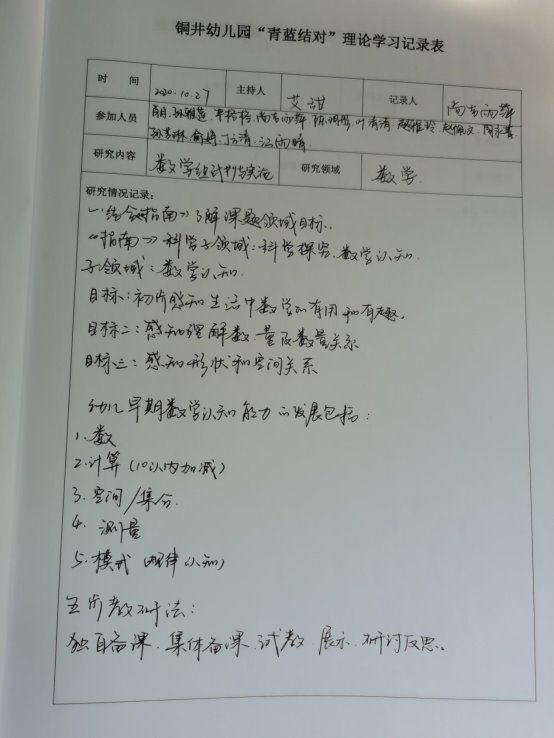 铜井幼儿园“青蓝结对”理论学习记录表
时 间 2020.10.27 主持人 艾甜 记录人 尚书雨萍
参加人员 孙雅莲 李格格 尚书雨萍 叶青清 赵雅玲 赵佩文
孙梦琳 俞婷 丁方清 江雨晴
研究内容 数学组计划与实施 研究领域 数学
研究情况记录:
一.结合《指南》了解课题领域目标.
《指南》科学子领域:科学探究.数学认知.
子领域:数学认知
目标一:初步感知生活中数学的有用和有趣.
目标二:感知理解数、量及数量关系
目标三:感知形状和空间关系
幼儿早期数学认知能力的发展包括:
1.数
2.计算(10以内加减)
3.空间/集合.
4.测量
5.模式(规律认知)
五步教研法:
独自备课.集体备课.试教 展示.研讨反思.